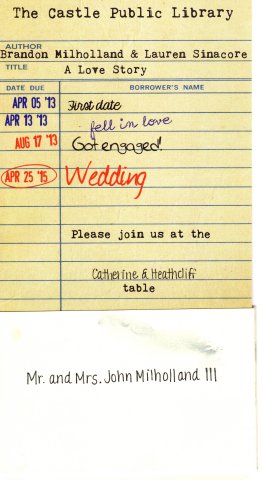 The Castle Public Library
AUTHOR
Brandon Milholland & Lauren Sinacore
TITLE A Love Story
DATE DUE BORROWER'S NAME
APR 05 '13 First date
APR 13 '13 fell in love
AUG 17 '13 Got engaged!!
APR 25 '15 Wedding
Please join us at the
Catherine & Heathcliff
table
Mr. and Mrs. John Milholland III